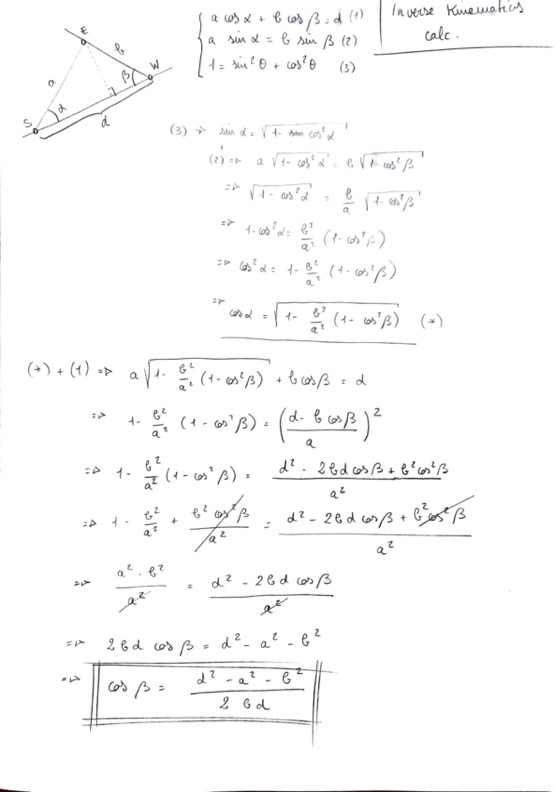 Inverse Kinematics
calc.
E
a
b
S
α
β
W
d
a cos α + b cos β = d (1)
a sin α = b sin β (2)
1 = sin² θ + cos² θ (3)
(3) => sin α = √(1 - cos² α)
+
(2) => a √(1 - cos² α) = b √(1 - cos² β)
=> √(1 - cos² α) = b/a √(1 - cos² β)
=> 1 - cos² α = b²/a² (1 - cos² β)
=> cos² α = 1 - b²/a² (1 - cos² β)
=> cos α = √(1 - b²/a² (1 - cos² β)) (*)
(*) + (1) => a √(1 - b²/a² (1 - cos² β)) + b cos β = d
=> 1 - b²/a² (1 - cos² β) = ((d - b cos β)/a)²
=> 1 - b²/a² (1 - cos² β) = (d² - 2bd cos β + b² cos² β)/a²
=> 1 - b²/a² + b² cos² β/a² = (d² - 2bd cos β + b² cos² β)/a²
=> (a² - b²)/a² = (d² - 2bd cos β)/a²
=> 2bd cos β = d² - a² - b²
=> cos β = (d² - a² - b²)/(2bd)